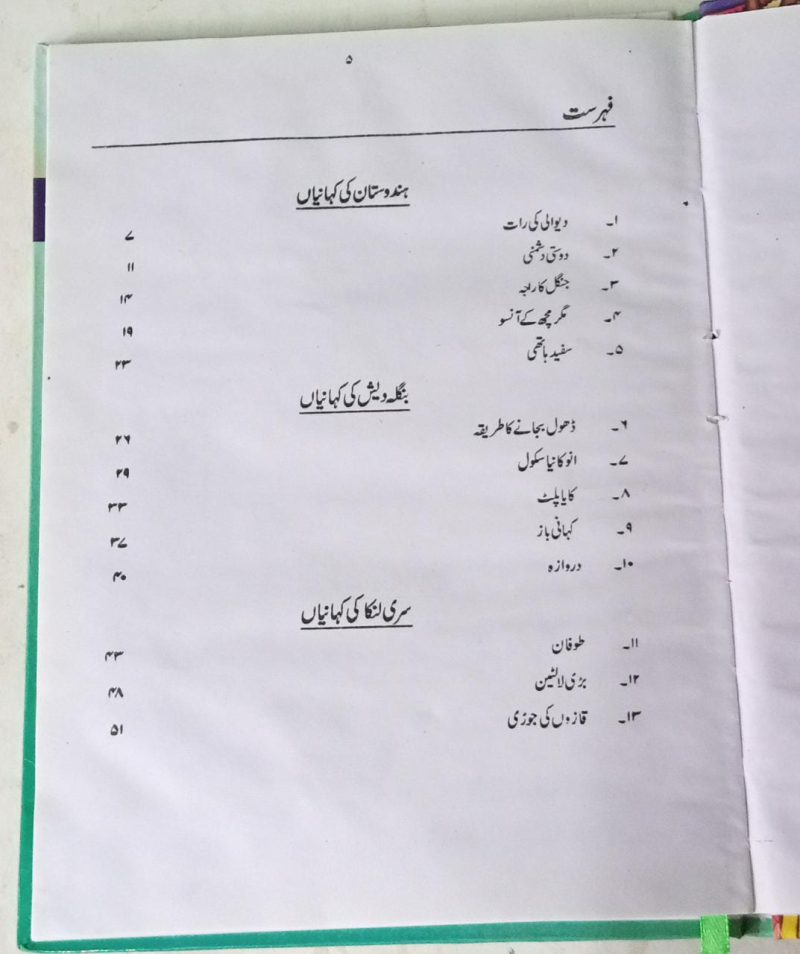 ۵
فہرست
ہندوستان کی کہانیاں
۱۔ دیوالی کی رات ۷
۲۔ دوستی دشمنی ۱۱
۳۔ جنگل کا راجہ ۱۴
۴۔ مگر مچھ کے آنسو ۱۹
۵۔ سفید ہاتھی ۲۳
بنگلہ دیش کی کہانیاں
۶۔ ڈھول بجانے کا طریقہ ۲۶
۷۔ انو کا نیا سکول ۲۹
۸۔ کایا پلٹ ۳۳
۹۔ کہانی باز ۳۷
۱۰۔ دروازہ ۴۰
سری لنکا کی کہانیاں
۱۱۔ طوفان ۴۳
۱۲۔ بڑی لالٹین ۴۸
۱۳۔ قازوں کی جوڑی ۵۱